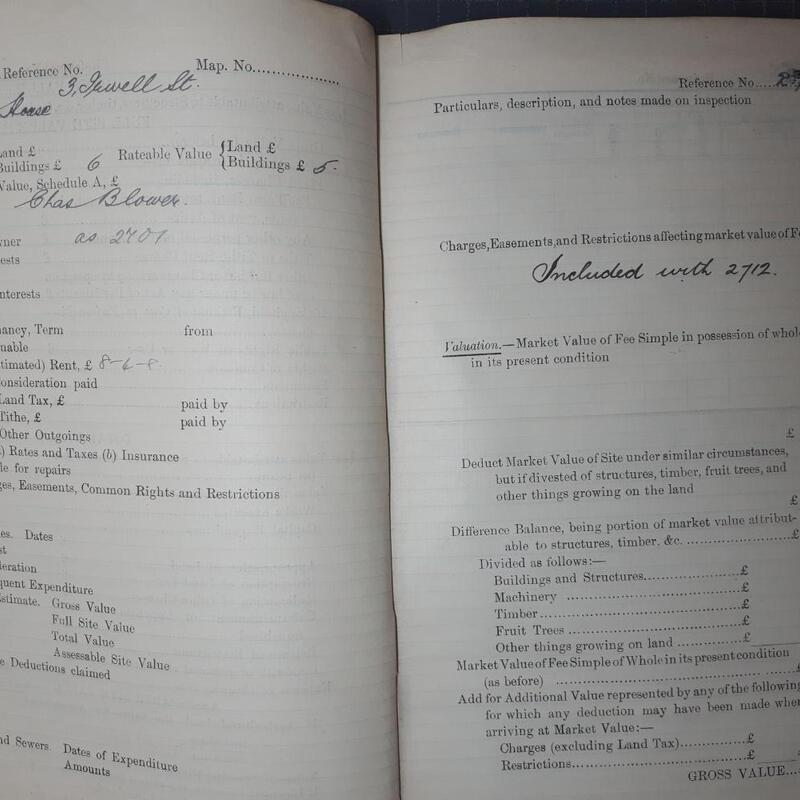 Reference No. Map. No..................
3, Irwell St.
House
Land £
Buildings £ 6 Rateable Value { Land £
Buildings £ 5
Value, Schedule A, £
Chas Blower.
as 2701
Interests
Term from
Rent, £ 8-6-8
Consideration paid
Land Tax, £ paid by
Tithe, £ paid by
Other Outgoings
Rates and Taxes (b) Insurance
for repairs
Easements, Common Rights and Restrictions
Dates
Expenditure
Estimate. Gross Value
Full Site Value
Total Value
Assessable Site Value
Deductions claimed
Sewers. Dates of Expenditure
Amounts
Reference No.....
Particulars, description, and notes made on inspection
Charges, Easements, and Restrictions affecting market value of
Included with 2712.
Valuation.—Market Value of Fee Simple in possession of whole
in its present condition
£
Deduct Market Value of Site under similar circumstances,
but if divested of structures, timber, fruit trees, and
other things growing on the land
£
Difference Balance, being portion of market value attribut-
able to structures, timber, &c. ....................£
Divided as follows:—
Buildings and Structures..................£
Machinery ................................£
Timber....................................£
Fruit Trees ...............................£
Other things growing on land .............£
Market Value of Fee Simple of Whole in its present condition
(as before) ........................................£
Add for Additional Value represented by any of the following
for which any deduction may have been made when
arriving at Market Value:—
Charges (excluding Land Tax)..............£
Restrictions..............................£
GROSS VALUE...